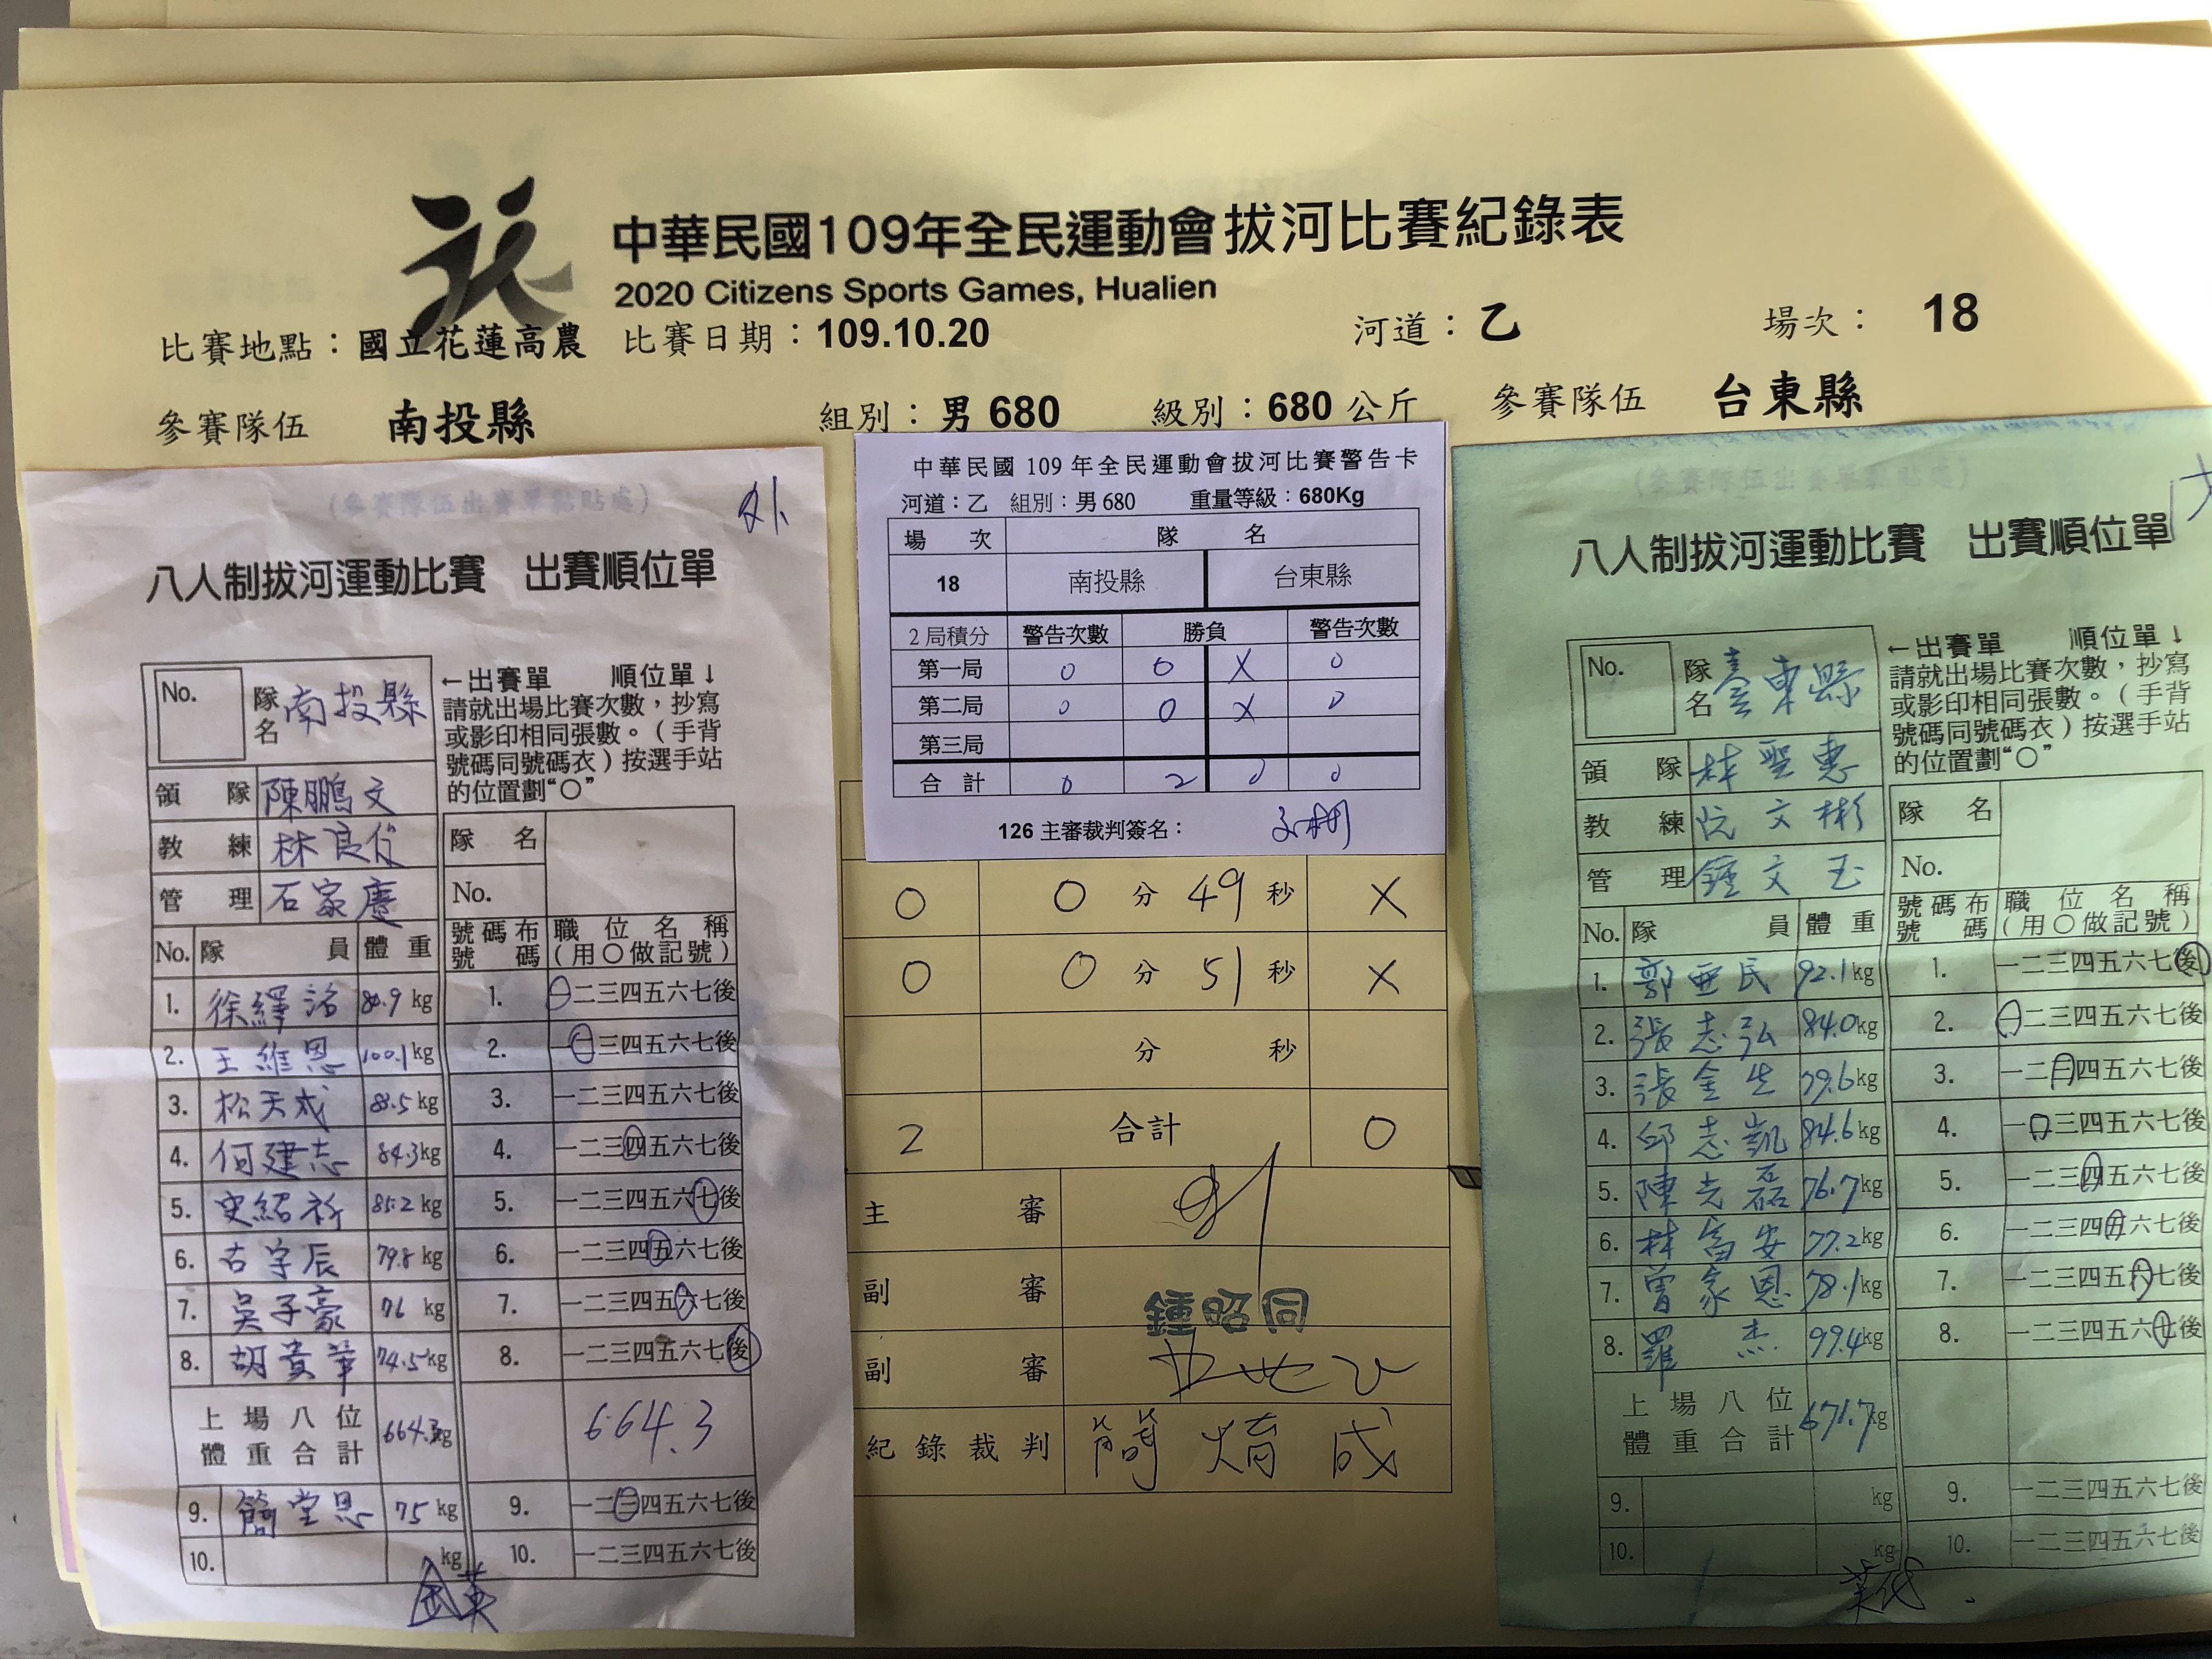 中華民國109年全民運動會拔河比賽紀錄表
2020 Citizens Sports Games, Hualien
比賽地點：國立花蓮高農 比賽日期：109.10.20 河道：乙 場次： 18
參賽隊伍 南投縣 組別：男 680 級別：680 公斤 參賽隊伍 台東縣
(參賽隊伍出賽單黏貼處)
八人制拔河運動比賽 出賽順位單
No. 隊名 南投縣
←出賽單 順位單↓
請就出場比賽次數，抄寫
或影印相同張數。（手背
號碼同號碼衣）按選手站
的位置劃“○”
領隊 陳鵬文
教練 林良
管理 石家慶
隊名
No.
No. 隊員 體重 號碼布號碼 職位名稱（用○做記號）
1. 徐繹洺 80.9 kg 1. 一二三四五六七後
2. 王維恩 100.1 kg 2. 一二三四五六七後
3. 松天成 88.5 kg 3. 一二三四五六七後
4. 何建志 84.3 kg 4. 一二三四五六七後
5. 史紹祈 85.2 kg 5. 一二三四五六七後
6. 古宇辰 79.8 kg 6. 一二三四五六七後
7. 吳子豪 76 kg 7. 一二三四五六七後
8. 胡貴華 74.5 kg 8. 一二三四五六七後
上場八位體重合計 664.3 kg 664.3
9. 簡堂恩 75 kg 9. 一二三四五六七後
10. kg 10. 一二三四五六七後
中華民國 109 年全民運動會拔河比賽警告卡
河道：乙 組別：男 680 重量等級：680Kg
場次 隊名
18 南投縣 台東縣
2 局積分 警告次數 勝負 警告次數
第一局 0 0 X 0
第二局 0 0 X 0
第三局
合計 0 2 0 0
126 主審裁判簽名：
0 0 分 49 秒 X
0 0 分 51 秒 X
分 秒
2 合計 0
主審
副審 鍾昭同
副審
紀錄裁判 簡焴成
(參賽隊伍出賽單黏貼處)
八人制拔河運動比賽 出賽順位單
No. 隊名 臺東縣
←出賽單 順位單↓
請就出場比賽次數，抄寫
或影印相同張數。（手背
號碼同號碼衣）按選手站
的位置劃“○”
領隊 林聖惠
教練 阮文彬
管理 鍾文玉
隊名
No.
No. 隊員 體重 號碼布號碼 職位名稱（用○做記號）
1. 郭亜民 92.1 kg 1. 一二三四五六七後
2. 張志弘 84.0 kg 2. 一二三四五六七後
3. 張金生 79.6 kg 3. 一二三四五六七後
4. 邱志凱 84.6 kg 4. 一二三四五六七後
5. 陳志磊 76.7 kg 5. 一二三四五六七後
6. 林富安 77.2 kg 6. 一二三四五六七後
7. 曾家恩 78.1 kg 7. 一二三四五六七後
8. 羅杰 99.4 kg 8. 一二三四五六七後
上場八位體重合計 671.7 kg
9. kg 9. 一二三四五六七後
10. kg 10. 一二三四五六七後